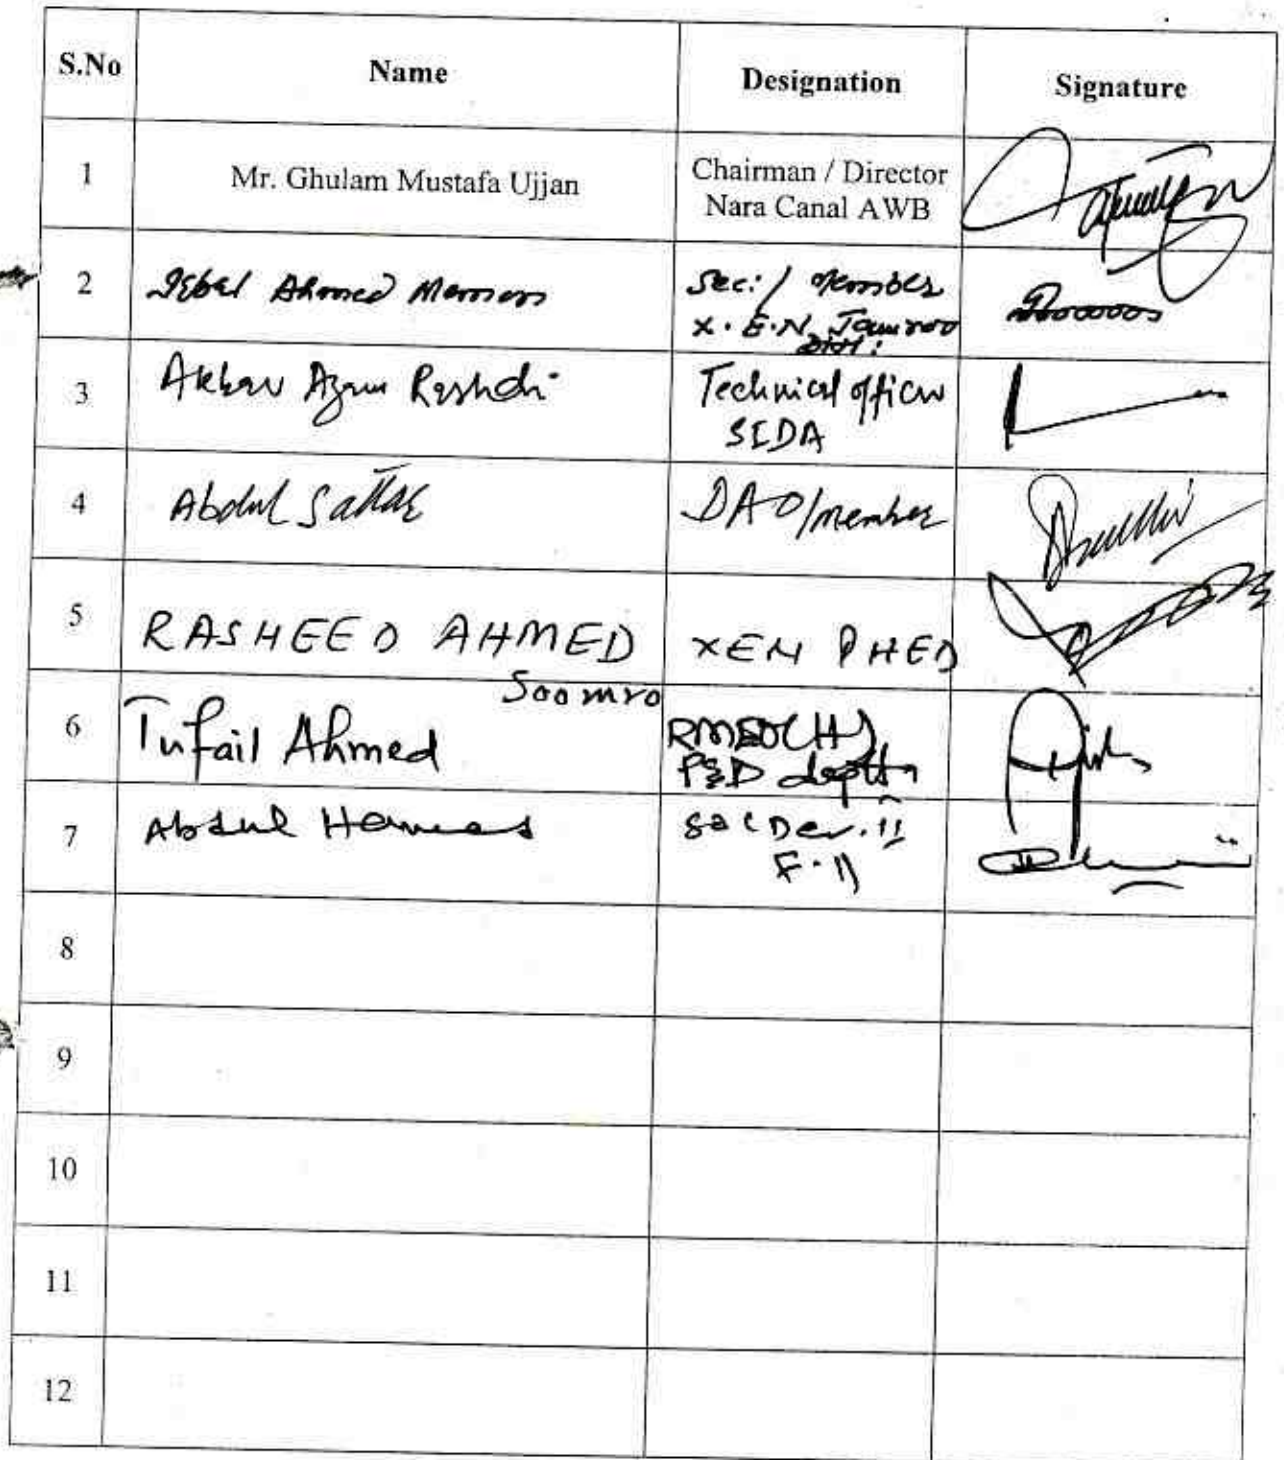 S.No Name Designation Signature
1 Mr. Ghulam Mustafa Ujjan Chairman / Director
Nara Canal AWB
2 Iqbal Ahmed Memon Sec: / Member
X.E.N Jamrao
Divi:
3 Akbar Azam Rashdi Technical officer
SIDA
4 Abdul Sattar DAO/member
5 RASHEED AHMED XEN PHED
Soomro
6 Tufail Ahmed (H)
P&D deptt
7 Abdul Hameed So (Dev. II
F. II
8
9
10
11
12